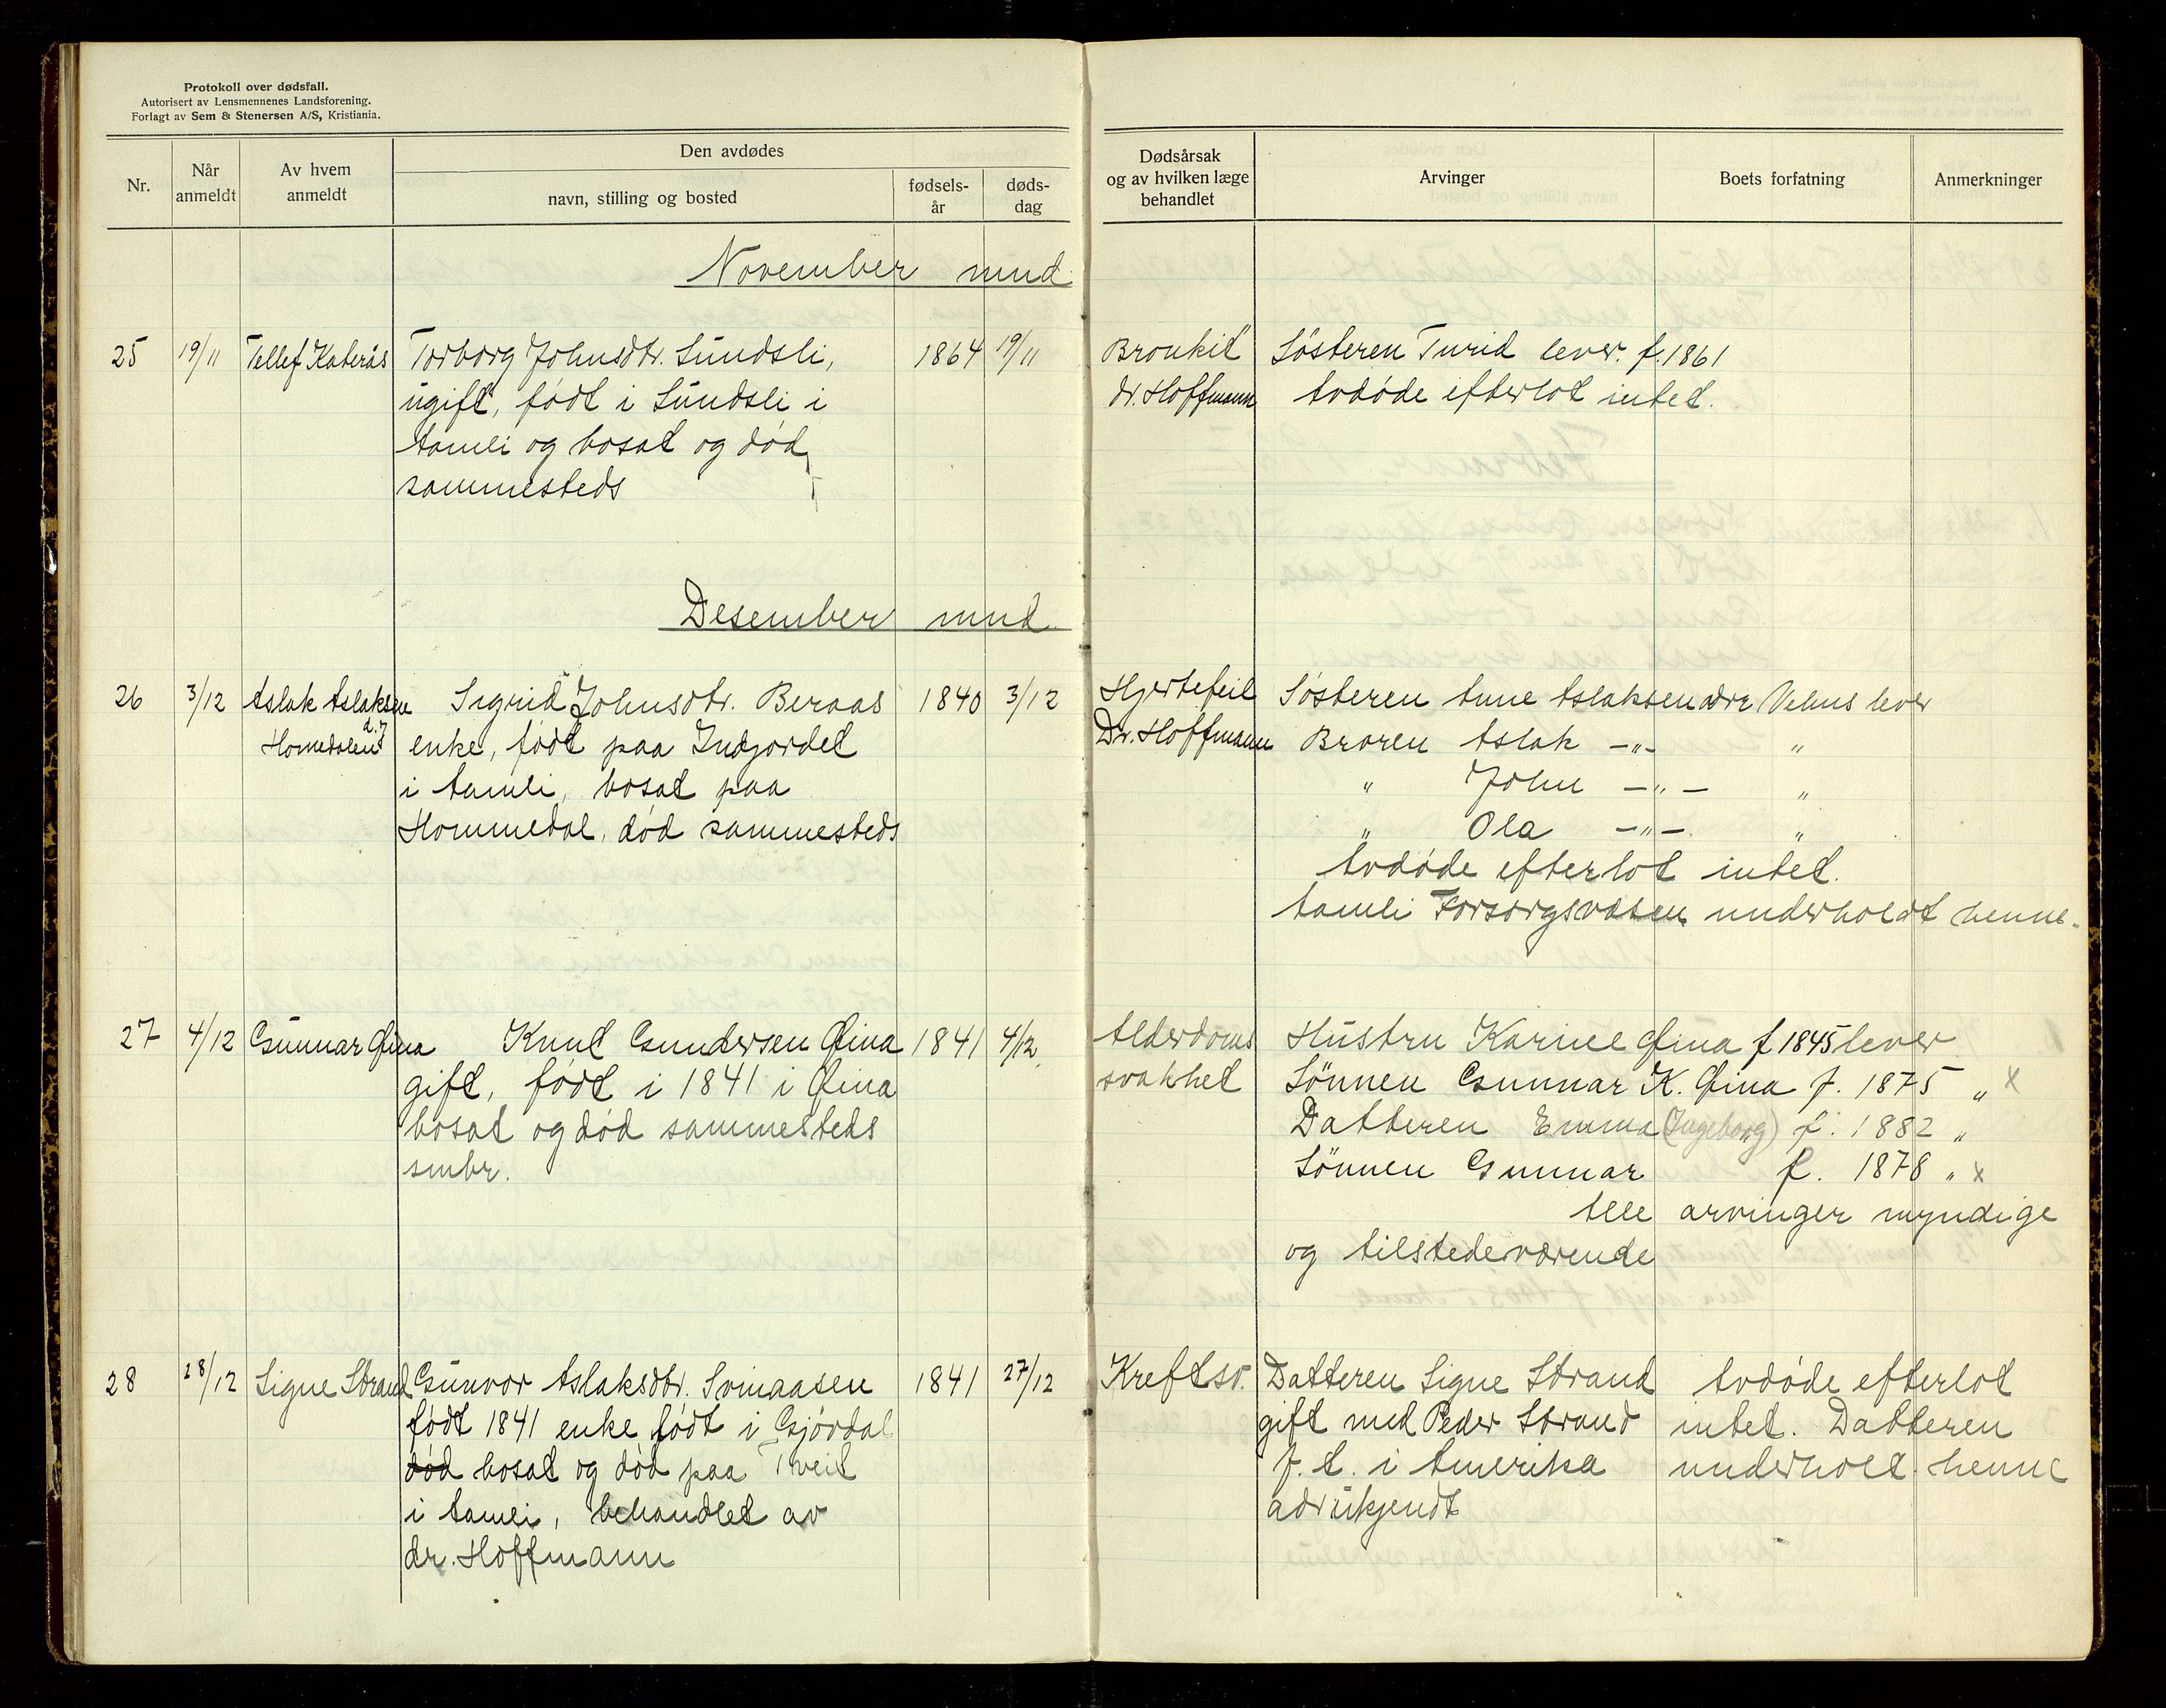 Protokoll over dødsfall.
Autorisert av Lensmennenes Landsforening.
Forlagt av Sem & Stenersen A/S, Kristiania.
Nr.
Når anmeldt
Av hvem anmeldt
Den avdødes
navn, stilling og bosted
fødsels-år
døds-dag
Dødsårsak og av hvilken læge behandlet
Arvinger
Boets forfatning
Anmerkninger
November mnd.
25 19/11 Tellef Katerås Torborg Johnsdtr. Sundsli, 1864 19/11 Bronkit Søsteren Turid lever. f. 1861
ugift, født i Sundsli i dr. Hoffmann Avdøde efterlot intet.
Aamli og bosat og død
sammesteds
Desember mnd.
26 3/12 Aslak Aslaksen Sigrid Johnsdtr. Beraas 1840 3/12 Hjertefeil Søsteren Anne Aslaksen Vehus lever
Homedalen enke, født paa Indgordet Dr. Hoffmann Broren Aslak -"- "
i Aamli, bosat paa " John -"- "
Hommedal, død sammesteds " Ola -"- "
Avdøde efterlot intet.
Aamli Forsorgsvæsen underholdt henne.
27 4/12 Gunnar Øina Knut Gundersen Øina 1841 4/12 Alderdoms Hustru Karine Øina f 1845 lever
gift, født i 1841 i Øina svakhet Sønnen Gunnar K. Øina f. 1875 " x
bosat og død sammesteds Datteren Emma (Ingeborg) f. 1882 "
smbr. Sønnen Gunnar f. 1878 " x
Alle arvinger myndige
og tilstedeværende
28 28/12 Signe Strand Gunvor Aslaksdtr. Svinaasen 1841 27/12 Kreftsv. Datteren Signe Strand Avdøde efterlot
født 1841 enke født i Gjøvdal gift med Peder Strand intet. Datteren
død bosat og død paa Tveit f. t. i Amerika underholt henne
i Aamli, behandlet av adr ukjendt
dr. Hoffmann